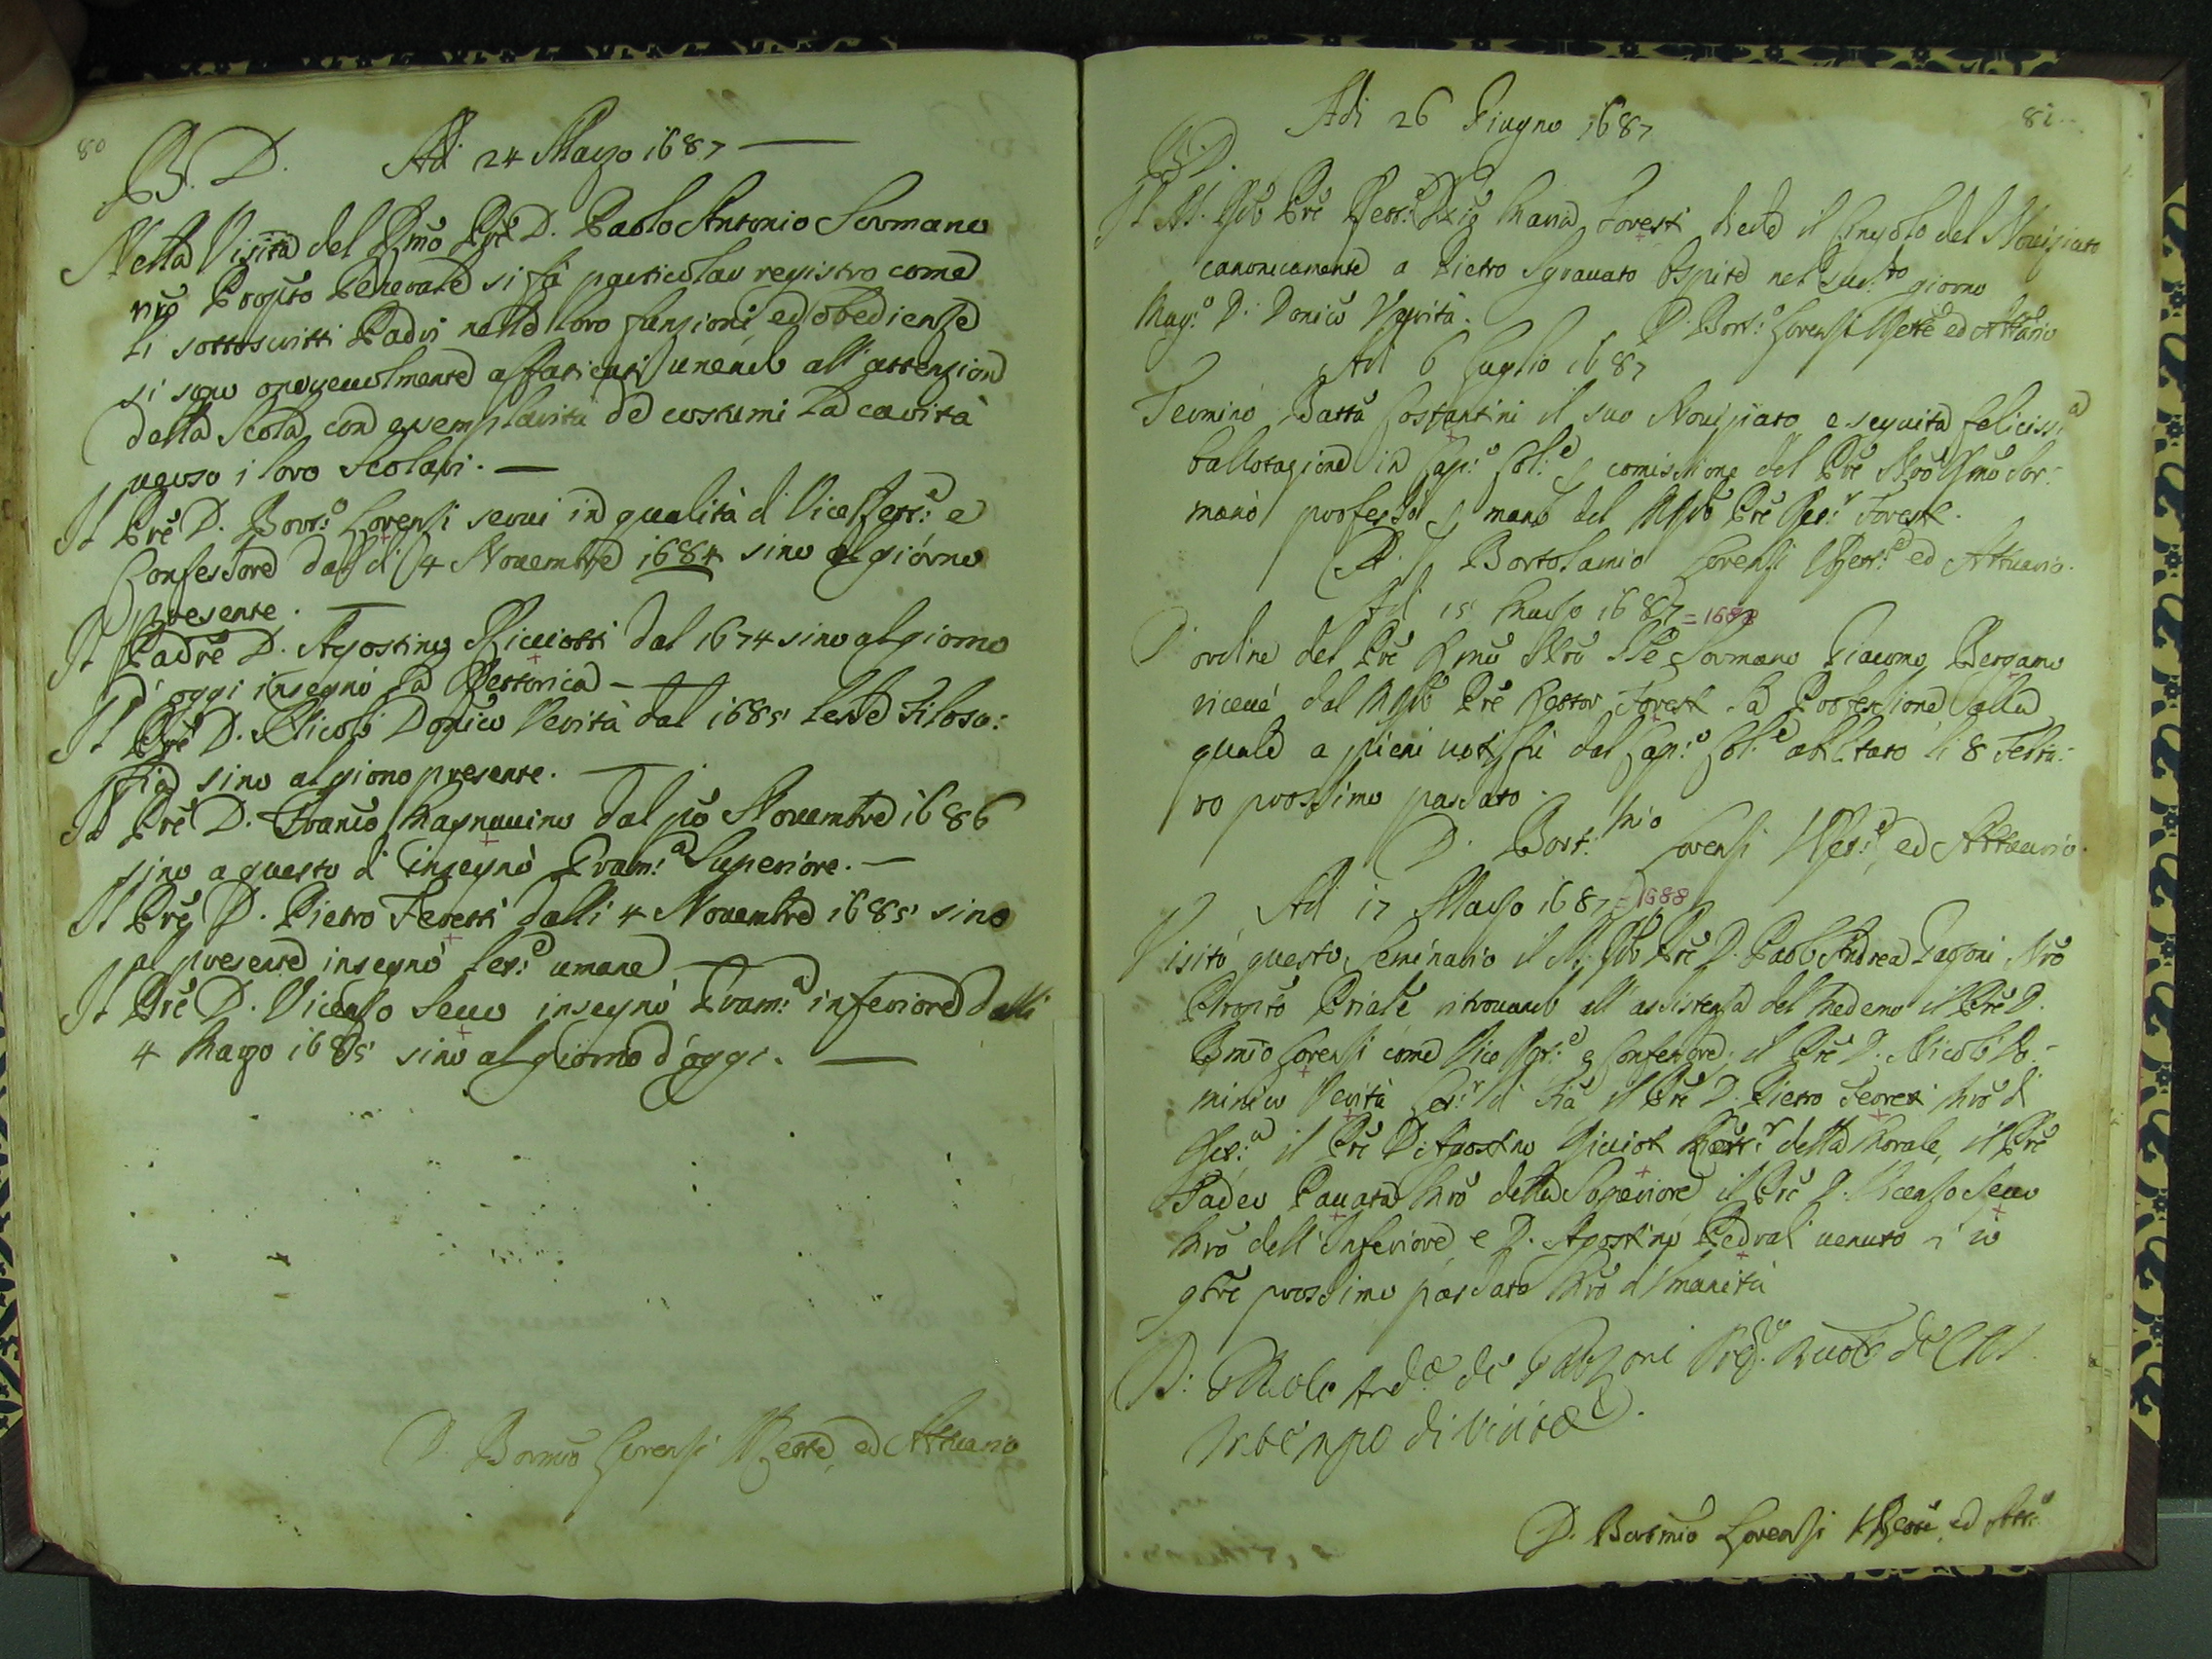 80
B. D. Adi 24 Marzo 1687
Nella Visita del Rmo Pre D. Paolo Antonio Sormano
nro Propto Generale si fà particolar registro come
li sottoscritti Padri nelle loro funzioni, ed obedienze
si sono onoreuolmente affaticati unendo all' attenzione
della Scola con esemplarità de costumi la carità
uerso i loro Scolari.
Il Pre D. Bort:o Lorensi serui in qualità di Vice Rett:e e
Confessore dal dì 4 Nouembre 1684 sino al giorno
presente.
Il Padre D. Agostino Ricciotti dal 1674 sino al giorno
d' oggi insegnò la Rettorica
Il Pre D. Nicolò Donico Verità dal 1685 lesse Filoso:
fia sino al giorno presente.
Il Pre D. Franco Magnauino dal po Nouembre 1686
sino a questo dì insegnò Gram:a Superiore.
Il Pre D. Pietro Feretti dalli 4 Nouembre 1685 sino
al presente insegnò let:e umane
Il Pre D. Vicenso Secco insegnò Gram:a inferiore dalli
4 Marzo 1685 sino al giorno d'oggi.
D. Bormio Lorensi VRette, ed Attuario
81
Adi 26 Giugno 1687
B. D.
Il M. Rdo Pre Rett:e Maria Foresti diede il Cingolo del Nouiziato
canonicamente a Pietro Sgrauato Ospite nel sud:to giorno
Mag:o D. Donico Verità. D. Bort:o Lorensi VRette ed Attario
Adi 6 Luglio 1687
Terminò Batta Costantini il suo Nouiziato, e seguita feliciss:a
ballotazione in Cap:o Col:e p comissione del Pre Nro Rmo Sor-
manò professò p mano del MRdo Pre Ret:r Foresti.
D. Bortolamio Lorensi VRett:e ed Attuario.
Adi 15 Marzo 1687 = 1688
D' ordine del Pre Rmo Nro Sormano Giacomo Bergamo
riceué dal MRdo Pre Rettor Foresti la Professione alla
quale a pieni uoti fù dal Cap:o Col:e abilitato li 8 Febra-
ro prossimo passato.
D. Bort:mio Lorensi VRet:e, ed Attuario.
Adi 17 Marzo 1687 = 1688
Visitò questo Seminario il M. Rdo Pre D. Paolo Andrea Gazoni Nro
Propto Priale ritrouando all' assistenza del medemo il Pre D.
Bmio Lorensi come Vice Ret:e e Confessore, il Pre D. Nicolò Do-
minico Verità Let:r di Fia il Pre D. Pietro Feretti Mro di
Ret:a il Pre D. Agostino Riciot Lett:r della Morale, il Pre
Tadeo Pauata Mro della Superiore, il Pre D. Vicenso Secco
Mro dell' Inferiore, e D. Agostino Pedrali uenuto
9bre prossimo passato Mro d'Umanità
D: Paulo And:a de Gazoni
in tempo di visita.
D. Bortmio Lorensi VRette, ed Att:o